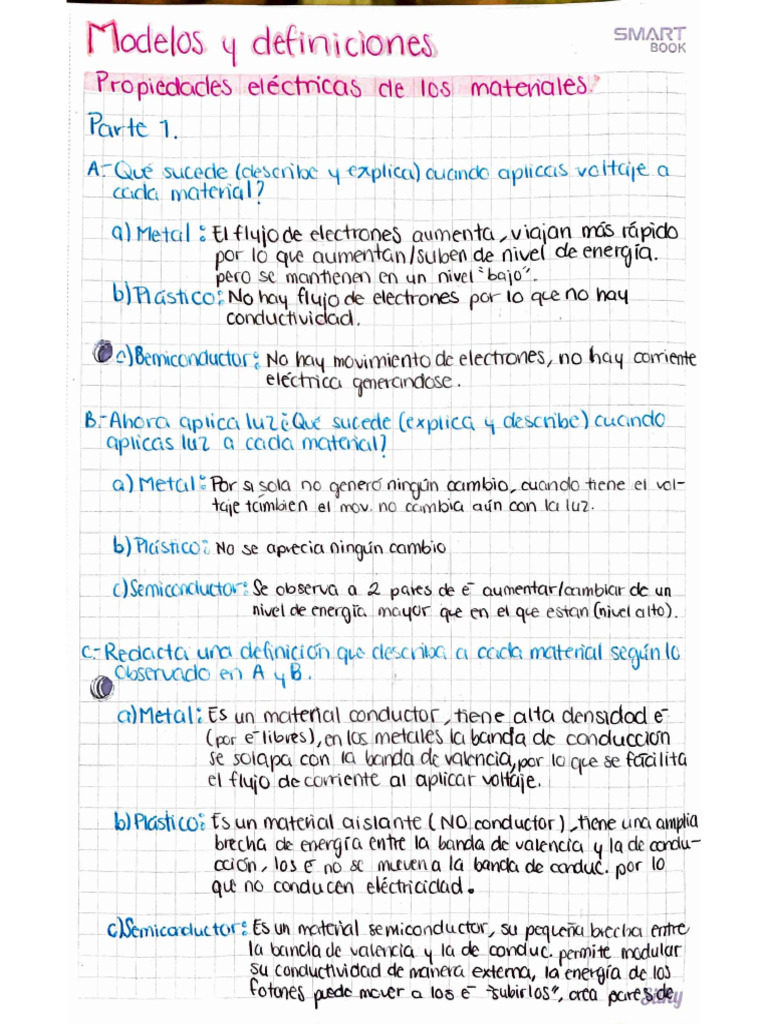 Modelos y definiciones
SMART
BOOK
Propiedades eléctricas de los materiales.
Parte 1.
A.- Qué sucede (describe y explica) cuando aplicas voltaje a
cada material?
a) Metal: El flujo de electrones aumenta, viajan más rápido
por lo que aumentan/suben de nivel de energía.
pero se mantienen en un nivel "bajo".
b) Plástico: No hay flujo de electrones por lo que no hay
conductividad.
c) Semiconductor: No hay movimiento de electrones, no hay corriente
eléctrica generandose.
B.- Ahora aplica luz ¿Qué sucede (explica y describe) cuando
aplicas luz a cada material?
a) Metal: Por si sola no generó ningún cambio, cuando tiene el vol-
taje también el mov. no cambia aún con la luz.
b) Plástico: No se aprecia ningún cambio
c) Semiconductor: Se observa a 2 pares de e⁻ aumentar/cambiar de un
nivel de energía mayor que en el que estan (nivel alto).
C.- Redacta una definición que describa a cada material según lo
observado en A y B.
a) Metal: Es un material conductor, tiene alta densidad e⁻
(por e⁻ libres), en los metales la banda de conducción
se solapa con la banda de valencia, por lo que se facilita
el flujo de corriente al aplicar voltaje.
b) Plástico: Es un material aislante (NO conductor), tiene una amplia
brecha de energía entre la banda de valencia y la de condu-
cción, los e⁻ no se mueven a la banda de conduc. por lo
que no conducen eléctricidad.
c) Semiconductor: Es un material semiconductor, su pequeña brecha entre
la banda de valencia y la de conduc. permite modular
su conductividad de manera externa, la energía de los
fotones puede mover a los e⁻ "subirlos", crea pares de